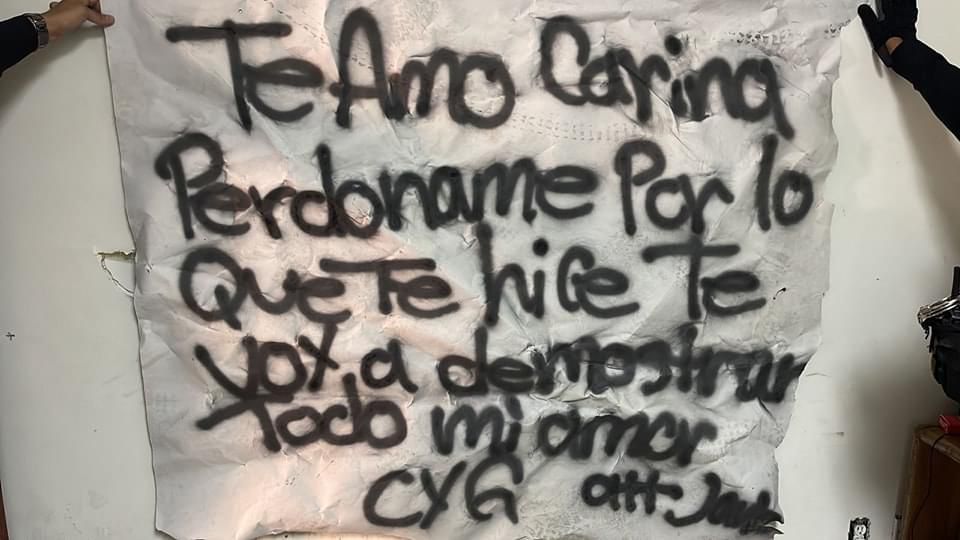 Te Amo Carina
Perdoname Por lo
Que Te hice Te
voy a demostrar
Todo mi amor
CYG att